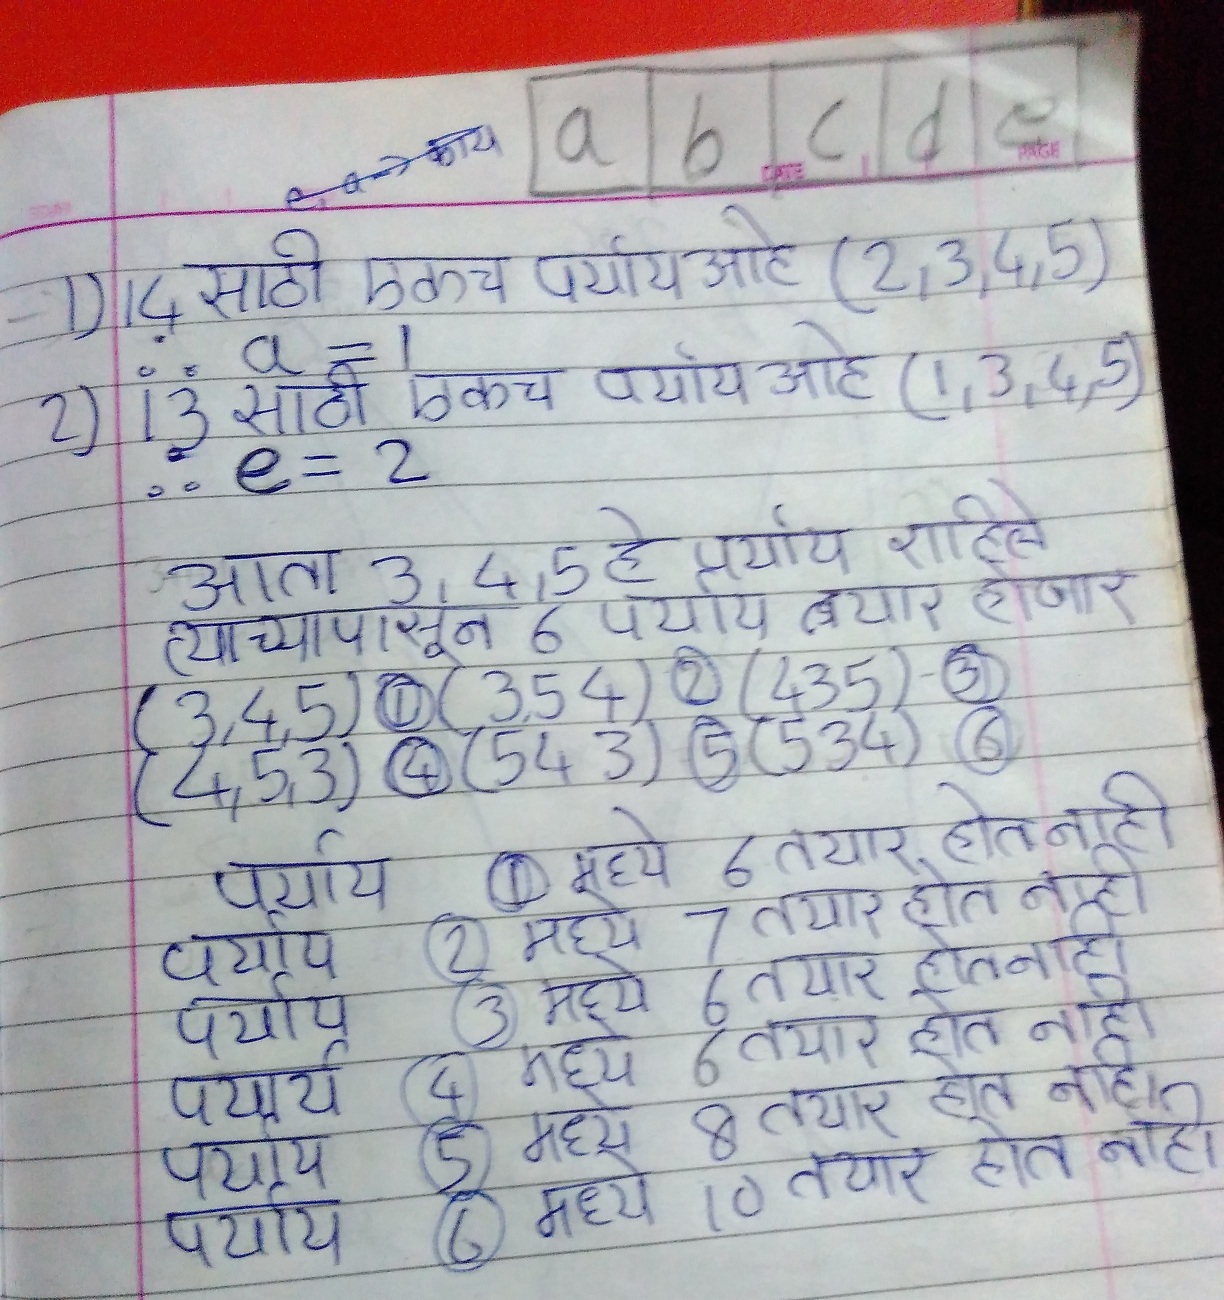 a b c d e
e, a → काय
DATE
PAGE
1) 14 साठी एकच पर्याय आहे (2,3,4,5)
∴ a = 1
2) 13 साठी एकच पर्याय आहे (1,3,4,5)
∴ e = 2
आता 3, 4, 5 हे पर्याय राहिले
त्याच्यापासून 6 पर्याय तयार होणार
(3,4,5) ① (3,54) ② (435) - ③
(4,5,3) ④ (543) ⑤ (534) ⑥
पर्याय ① मध्ये 6 तयार होत नाही
पर्याय ② मध्ये 7 तयार होत नाही
पर्याय ③ मध्ये 6 तयार होत नाही
पर्याय ④ मध्ये 6 तयार होत नाही
पर्याय ⑤ मध्ये 8 तयार होत नाही
पर्याय ⑥ मध्ये 10 तयार होत नाही